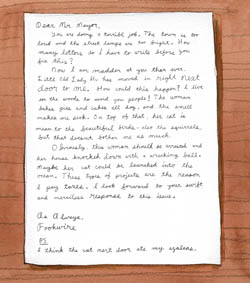 Dear Mr Mayor,
You are doing a terrible job. The town is too
loud and the street lamps are too bright. How
many letters do I have to write before you
fix this?
Now I am madder at you than ever.
Little Old Lady H. has moved in right next
door to me. How could this happen? I live
in the woods to avoid you people! The woman
bakes pies and cakes all day, and the smell
makes me sick. On top of that, her cat is
mean to the beautiful birds. Also the squirrels,
but that doesn't bother me as much.
Obviously, this woman should be arrested and
her house knocked down with a wrecking ball.
Maybe her cat could be launched into the
ocean. These types of projects are the reason
I pay taxes. I look forward to your swift
and merciless response to this issue.
As Always,
Fookwire
PS
I think the cat next door ate my azaleas.